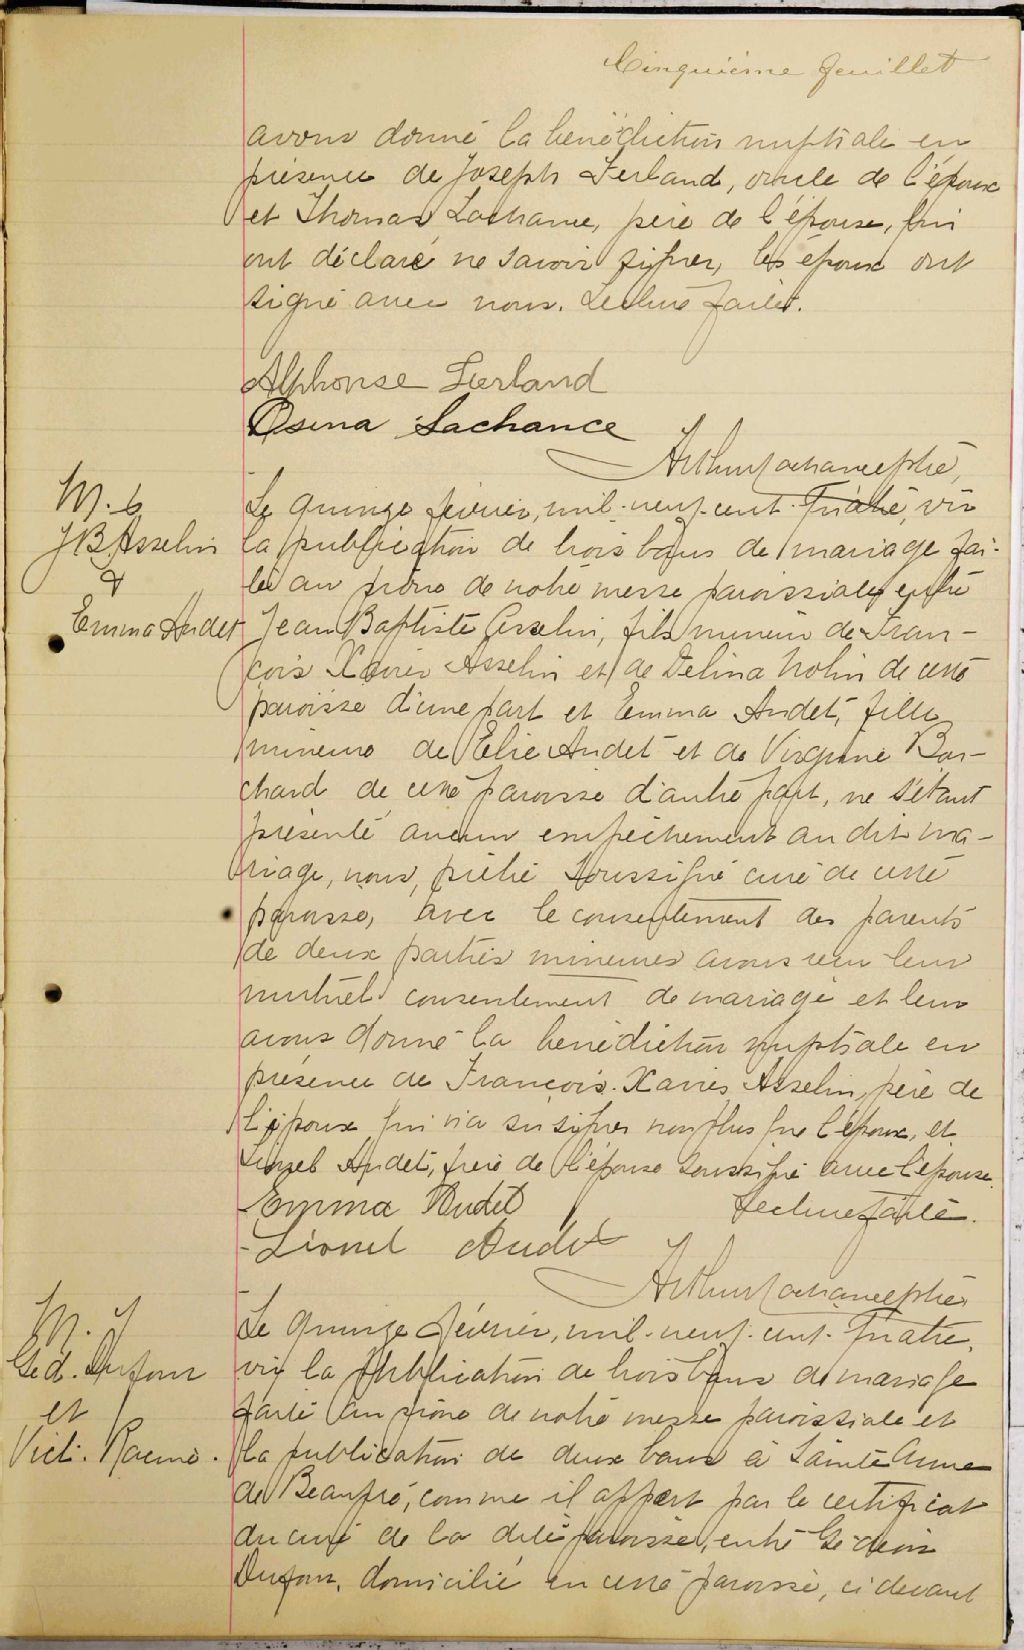 Cinquième feuillet
avons donné la bénédiction nuptiale en
présence de Joseph Ferland, oncle de l'époux
et Thomas Lachance, père de l'épouse, qui
ont déclaré ne savoir signer, les époux ont
signé avec nous. Lecture faite.
Alphonse Ferland
Osina Lachance
Arthur Lachance ptre,
M. 6
J B Asselin
&
Emma Audet
Le quinze février, mil-neuf-cent-quatre, vu
la publication de trois bans de mariage fai-
te au prône de notre messe paroissiale entre
Jean Baptiste Asselin, fils mineur de Fran-
çois Xavier Asselin et de Délina Nolin de cette
paroisse d'une part et Emma Audet, fille
mineure de Elie Audet et de Virginie Bou-
chard de cette paroisse d'autre part, ne s'étant
présenté aucun empêchement au dit ma-
riage, nous, prêtre soussigné curé de cette
paroisse, avec le consentement des parents
de deux parties mineures avons reçu leur
mutuel consentement de mariage et leur
avons donné la bénédiction nuptiale en
présence de François-Xavier Asselin, père de
l'époux qui n'a su signer non plus que l'époux, et
Lionel Audet, frère de l'épouse soussigné avec l'épouse.
Emma Audet Lecture faite.
Lionel Audet
Arthur Lachance ptre
M. 7
Géd. Dufour
et
Vict. Racine.
Le quinze février, mil-neuf-cent-quatre,
vu la publication de trois bans de mariage
faite au prône de notre messe paroissiale et
la publication de deux bans à Sainte Anne
de Beaupré, comme il appert par le certificat
du curé de la dite paroisse, entre Gédéon
Dufour, domicilié en cette paroisse, ci devant